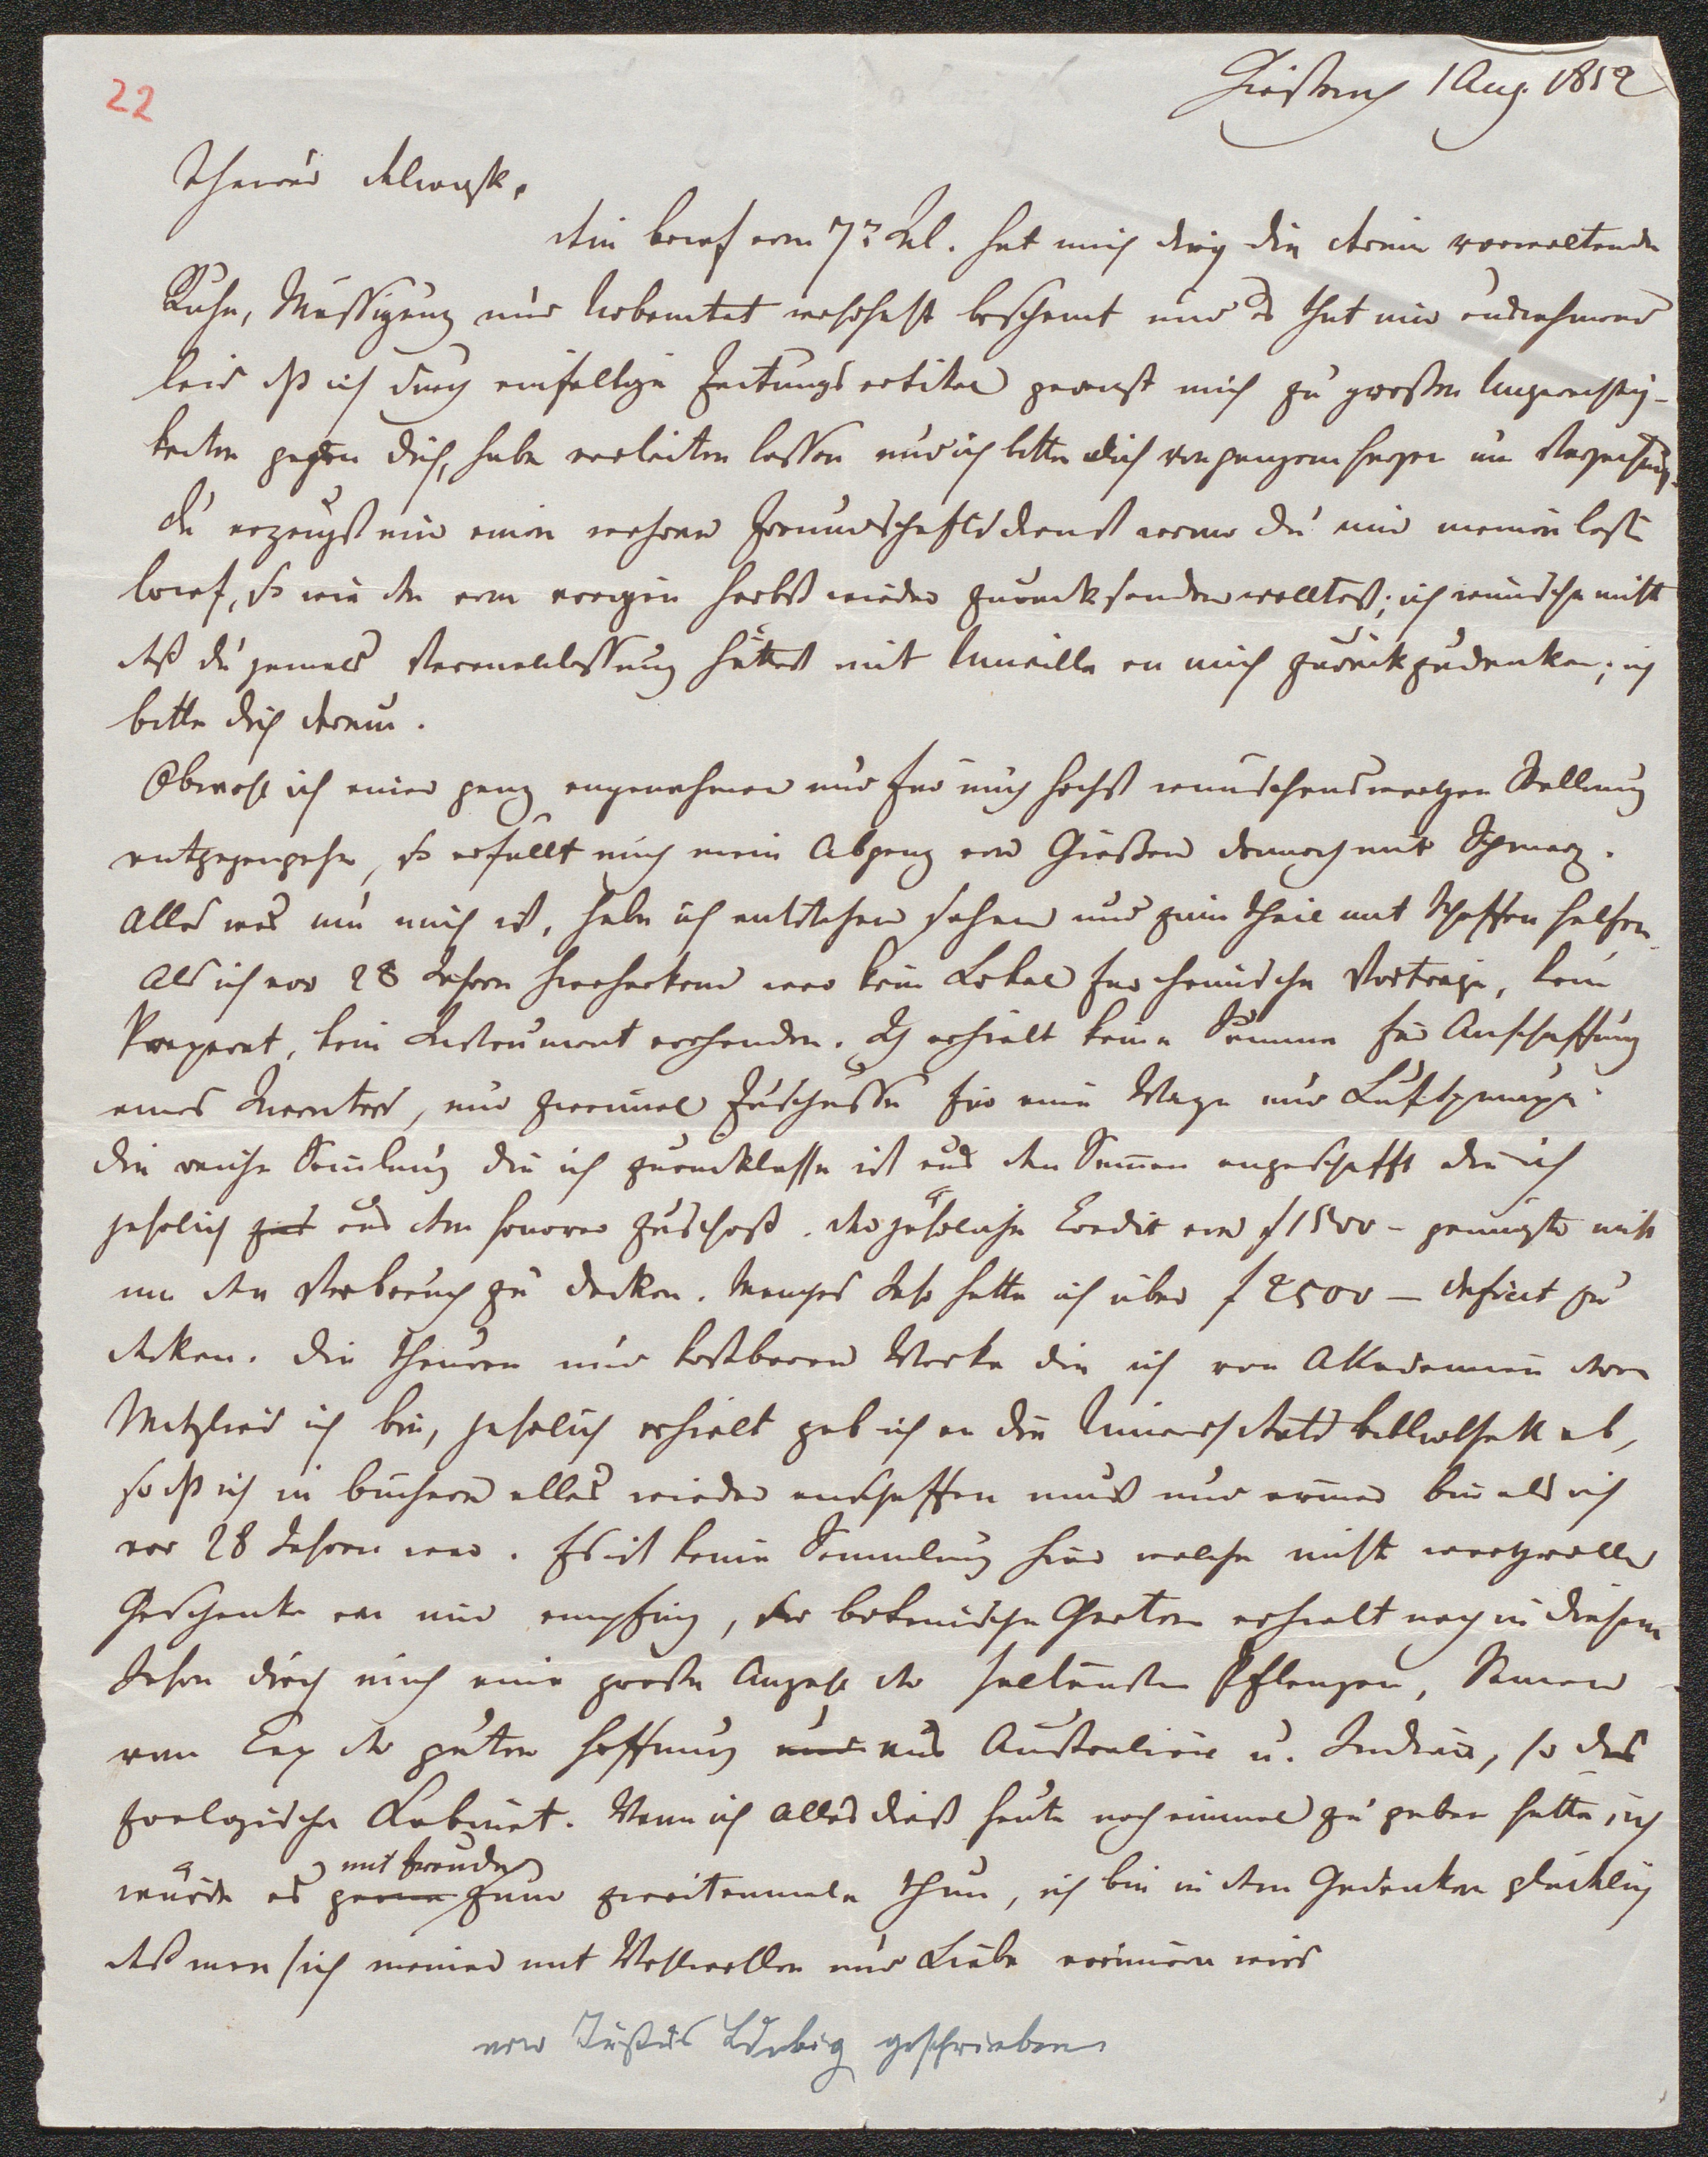 22
Giessen 1 Aug. 1852
Theurer
Dein Brief vom 7t Jul. hat mich durch die darin vorwaltende
Ruhe, Mässigung und Urbanitat wahrhaft beschamt und es thut mir ausnehmend
leid dß ich durch einfaltige Zeitungsartikel gereizt mich zu großen Ungerechtig-
keiten gegen dich, habe verleiten lassen und ich bitte dich von ganzem Herzen um Verzeihung.
du erzeigst mir einen wahren Freundschaftsdienst wenn du mir meinen letzten
Brief, so wie den vom vorigen Herbst wieder zurucksenden wolltest; ich wünsche nicht
daß du jemals Veranlassung hättest mit Unwille an mich zurückzudenken; ich
bitte dich darum.
Obwohl ich einer ganz angenehmen und fur mich hochst wünschenswerthen Stellung
entgegengehe, so erfüllt mich mein Abgang von Gießen dennoch mit Schmerz.
Alles was um mich ist, habe ich entstehen sehen und zum theil mit schaffen helfen.
Als ich vor 28 Jahren hierherkam war kein Lokal fur chemische Vortrage, kein
Praparat, kein Instrument vorhanden. Ich erhielt keine Summe für Anschaffung
eines Inventars, nur zweimal Zuschüsse fur eine Wage und Luftpumpe.
die reiche Samlung die ich zurucklasse ist aus den Summen angeschafft die ich
jahrlich aus dem Honorar zuschoß. der jährliche Credit von f 1500 – genügte nicht
um den Verbrauch zu decken. Manches Jahr hatte ich über f 2500 – deficit zu
decken. die theuren und kostbaren Werke die ich von Akademien deren
Mitglied ich bin, jahrlich erhielt gab ich an die Universitatsbibliothek ab,
so dß ich in büchern alles wieder anschaffen muß und armer bin als ich
vor 28 Jahren war. Es ist keine Sammlung hier welche nicht werthvolle
Geschenke von mir empfing, der botanische Garten erhielt noch in diesem
Jahre durch mich eine große Anzahl der seltensten Pflanzen, Samen
vom Cap der guten Hoffnung und aus Australien u. Indien, so das
zoologische Kabinet. Wenn ich alles dieß heute noch einmal zu geben hatte, ich
würde es gerne mit Freuden zum zweitenmale thun, ich bin in dem Gedanken glücklich
daß man sich meiner mit Wohlwollen und Liebe erinnern wird
von Justus Liebig geschrieben